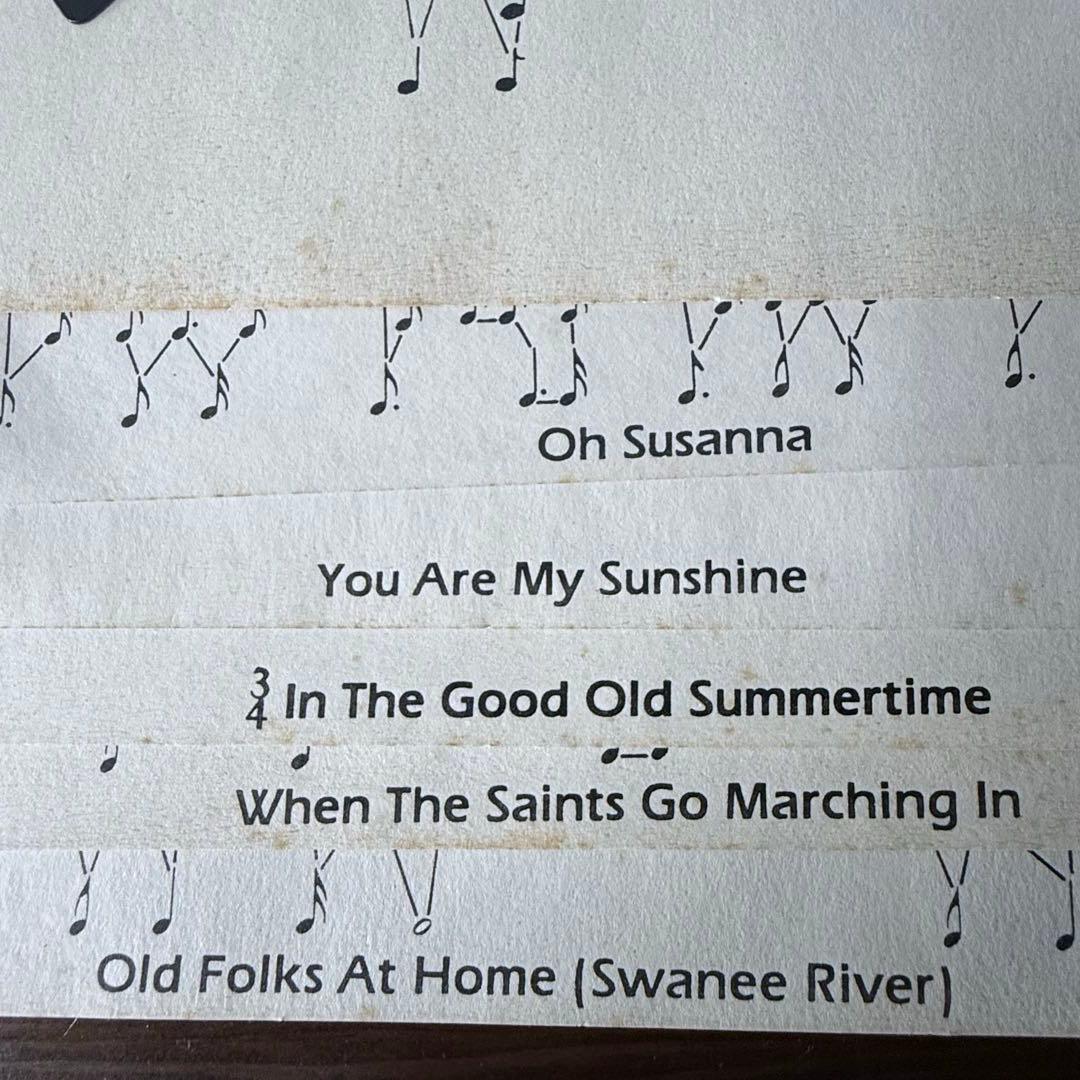 Oh Susanna
You Are My Sunshine
3/4 In The Good Old Summertime
When The Saints Go Marching In
Old Folks At Home (Swanee River)